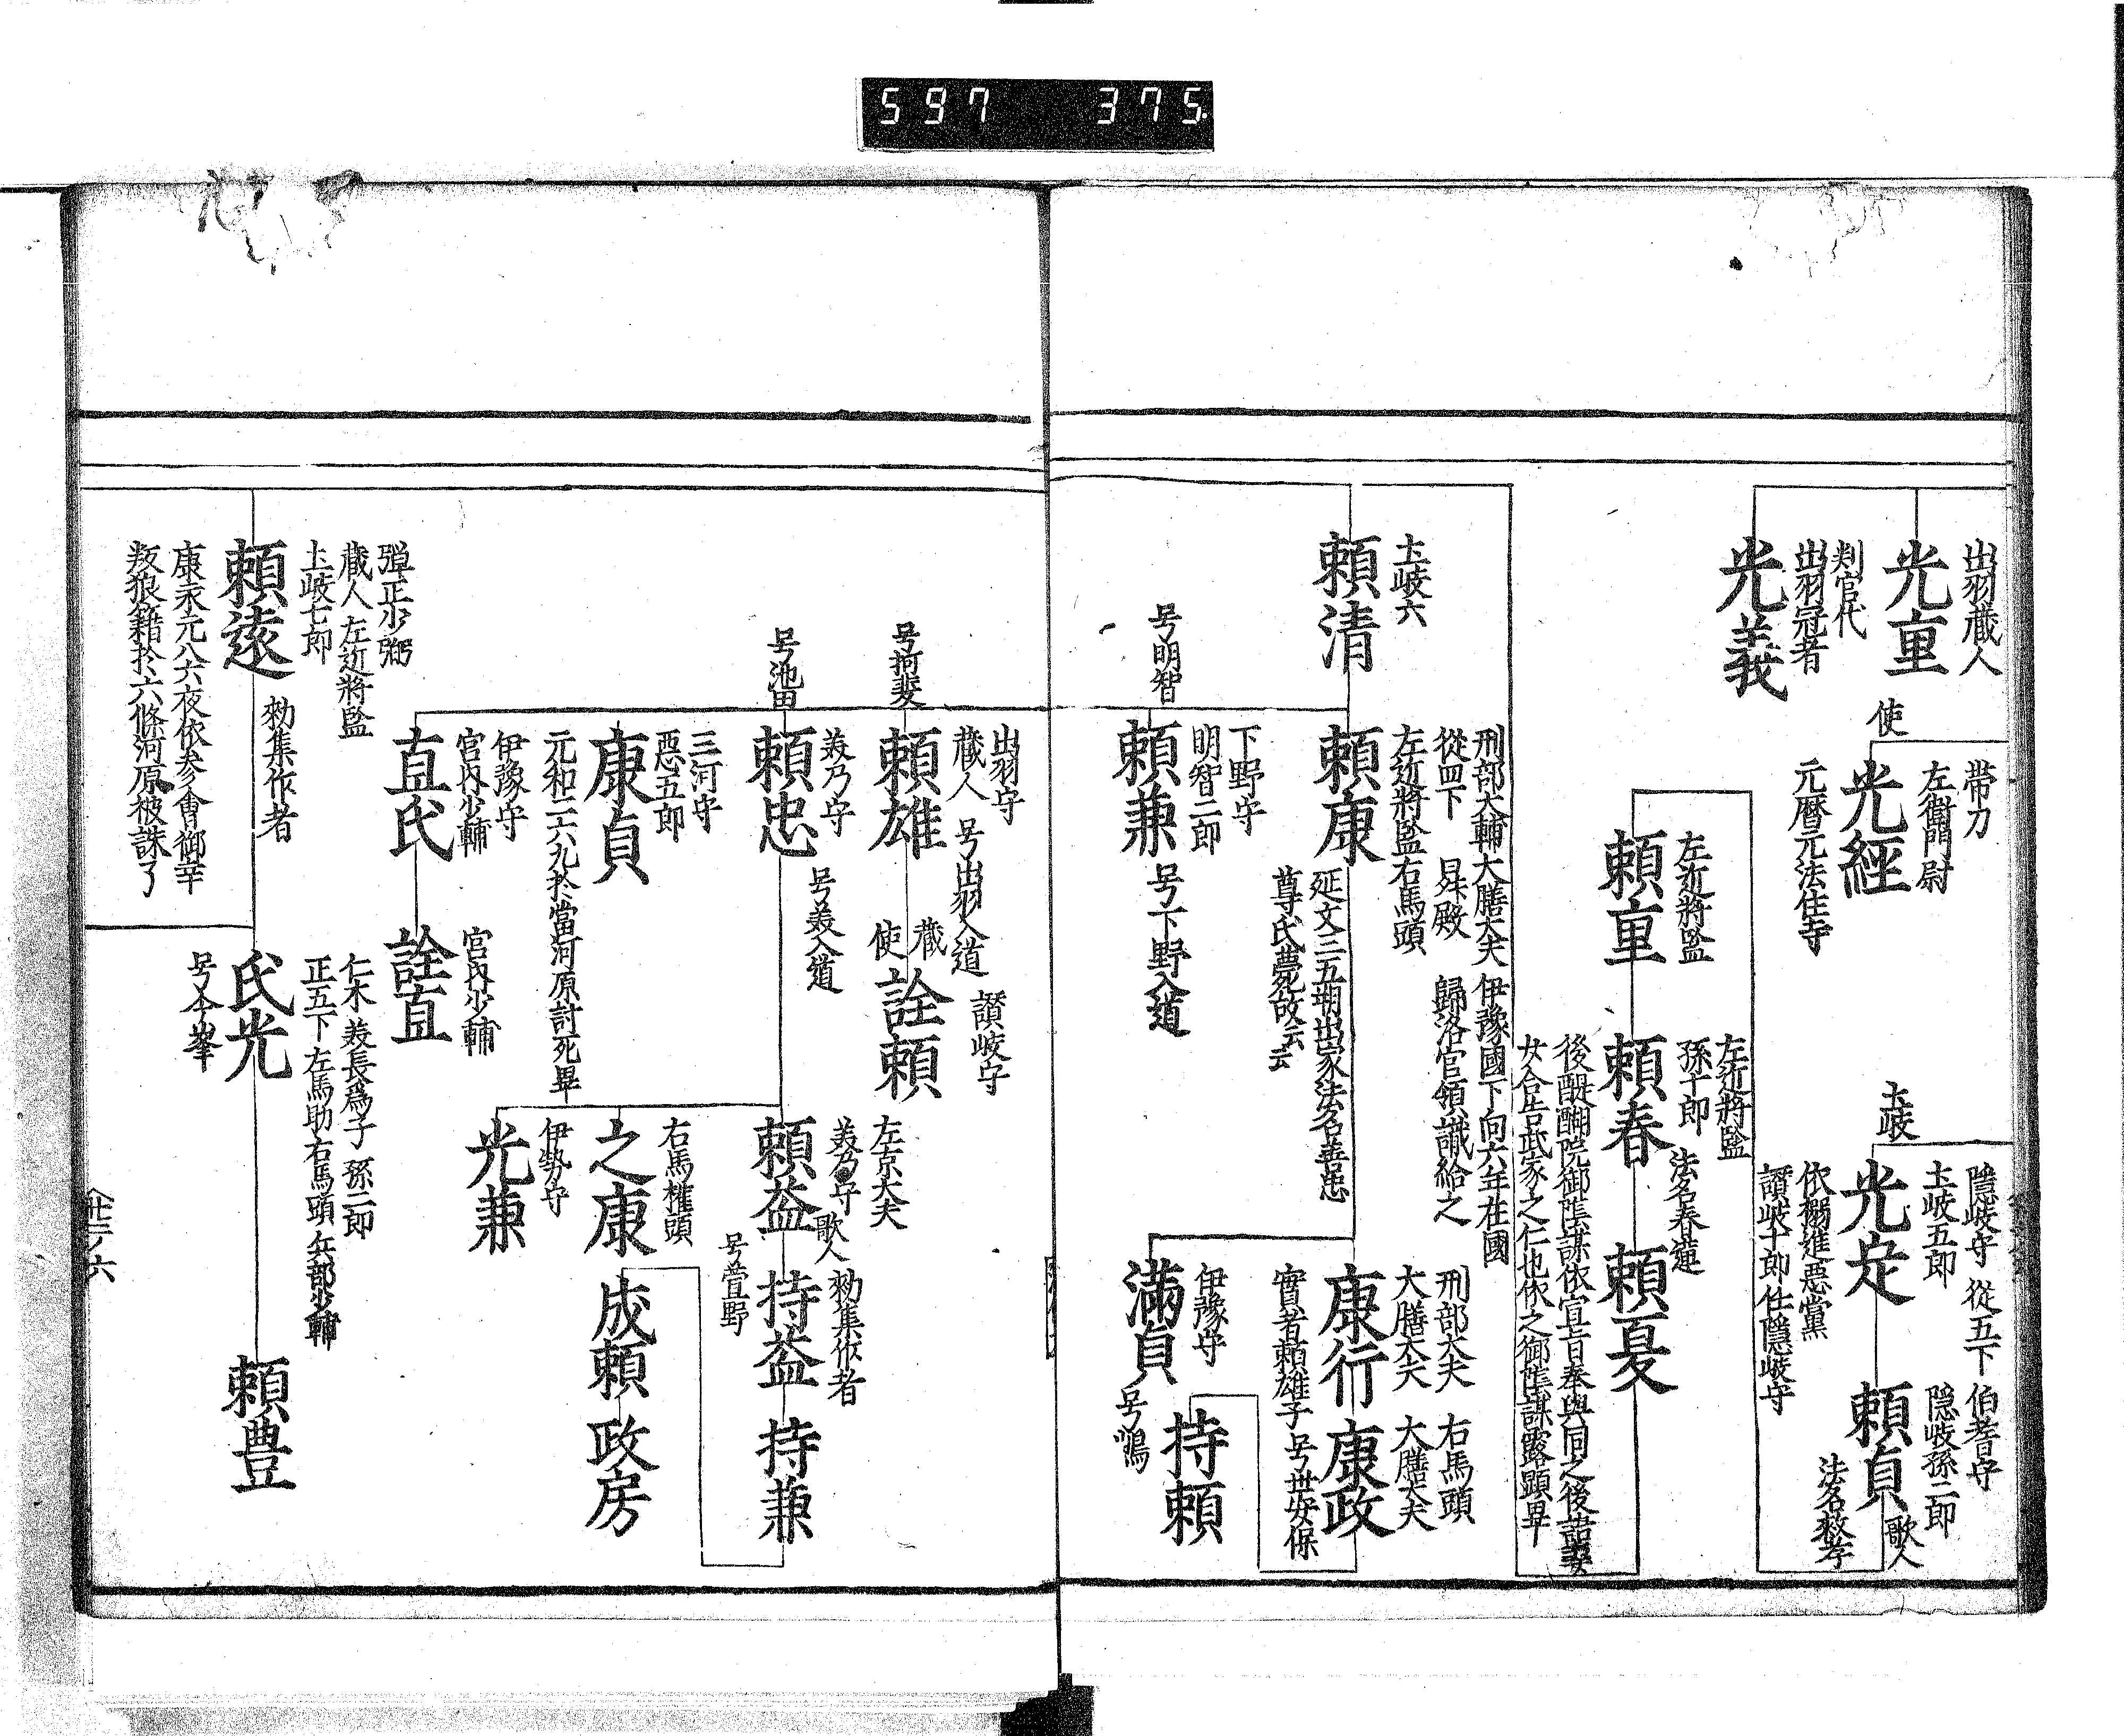 597 375
出羽蔵人
光重
使
判官代
出羽冠者
光義
帯刀
左衛門尉
光經
元暦元法住寺
土岐
隠岐守 從五下
土岐五郎
光定
依搦進悪黨
讃岐十郎任隠岐守
伯耆守
隠岐孫二郎
頼貞
歌人
法名救孝
左近將監
頼重
左近將監
孫十郎
法名春蓮
頼春
頼夏
後醍醐院御隂謀依宣旨奉與同之後語妻
女合告武家之仁也依之御隂謀露顕畢
土岐六
頼清
刑部大輔大膳大夫 伊豫國下向六年在國
從四下 昇殿 歸洛官領職給之
左近將監右馬頭
頼康
延文三五朔出家法名善忠
尊氏薨死故云云
刑部大夫
大膳大夫
康行
實者頼雄子
号世安保
右馬頭
大膳大夫
康政
伊豫守
滿貞
持頼
号明智
下野守
明智二郎
頼兼
号下野入道
号揖斐
出羽守
蔵人
号出羽入道
頼雄
蔵
使
讃岐守
詮頼
号池田
美乃守
頼忠
号美入道
左京大夫
美乃守
歌人
頼益
勅集作者
持益
号萱野
持兼
右馬権頭
之康
成頼
政房
伊勢守
光兼
三河守
悪五郎
康貞
元和二六九於當河原討死畢
伊豫守
宮内少輔
直氏
宮内少輔
詮直
弾正少弼
蔵人左近將監
土岐七郎
頼遠
勅集作者
康永元八六夜依参會御幸
叛狼籍於六條河原被誅了
仁木義長爲子 孫二郎
正五下左馬助右馬頭 兵部少輔
氏光
号今峯
頼豊